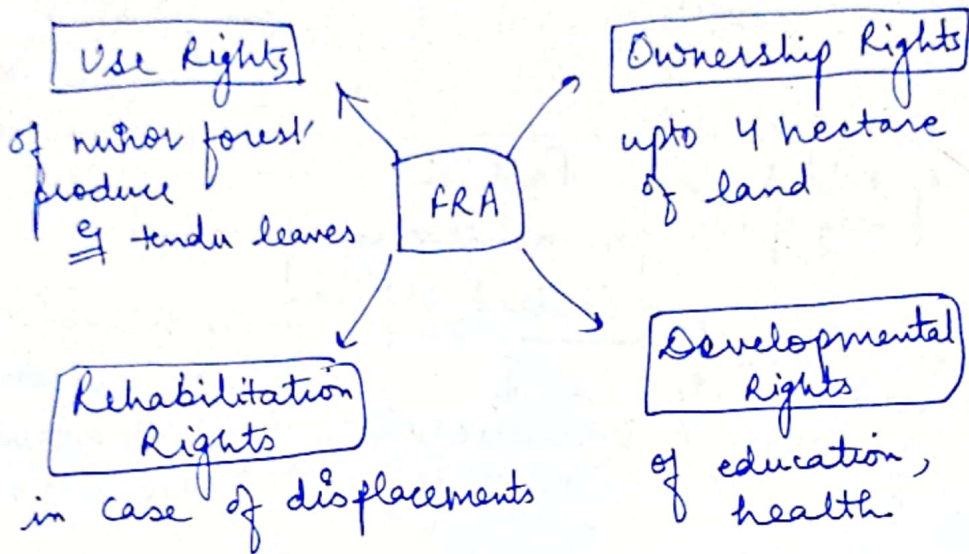 Use Rights
of minor forest
produce
eg tendu leaves
Ownership Rights
upto 4 hectare
of land
FRA
Rehabilitation
Rights
in case of displacements
Developmental
Rights
of education,
health